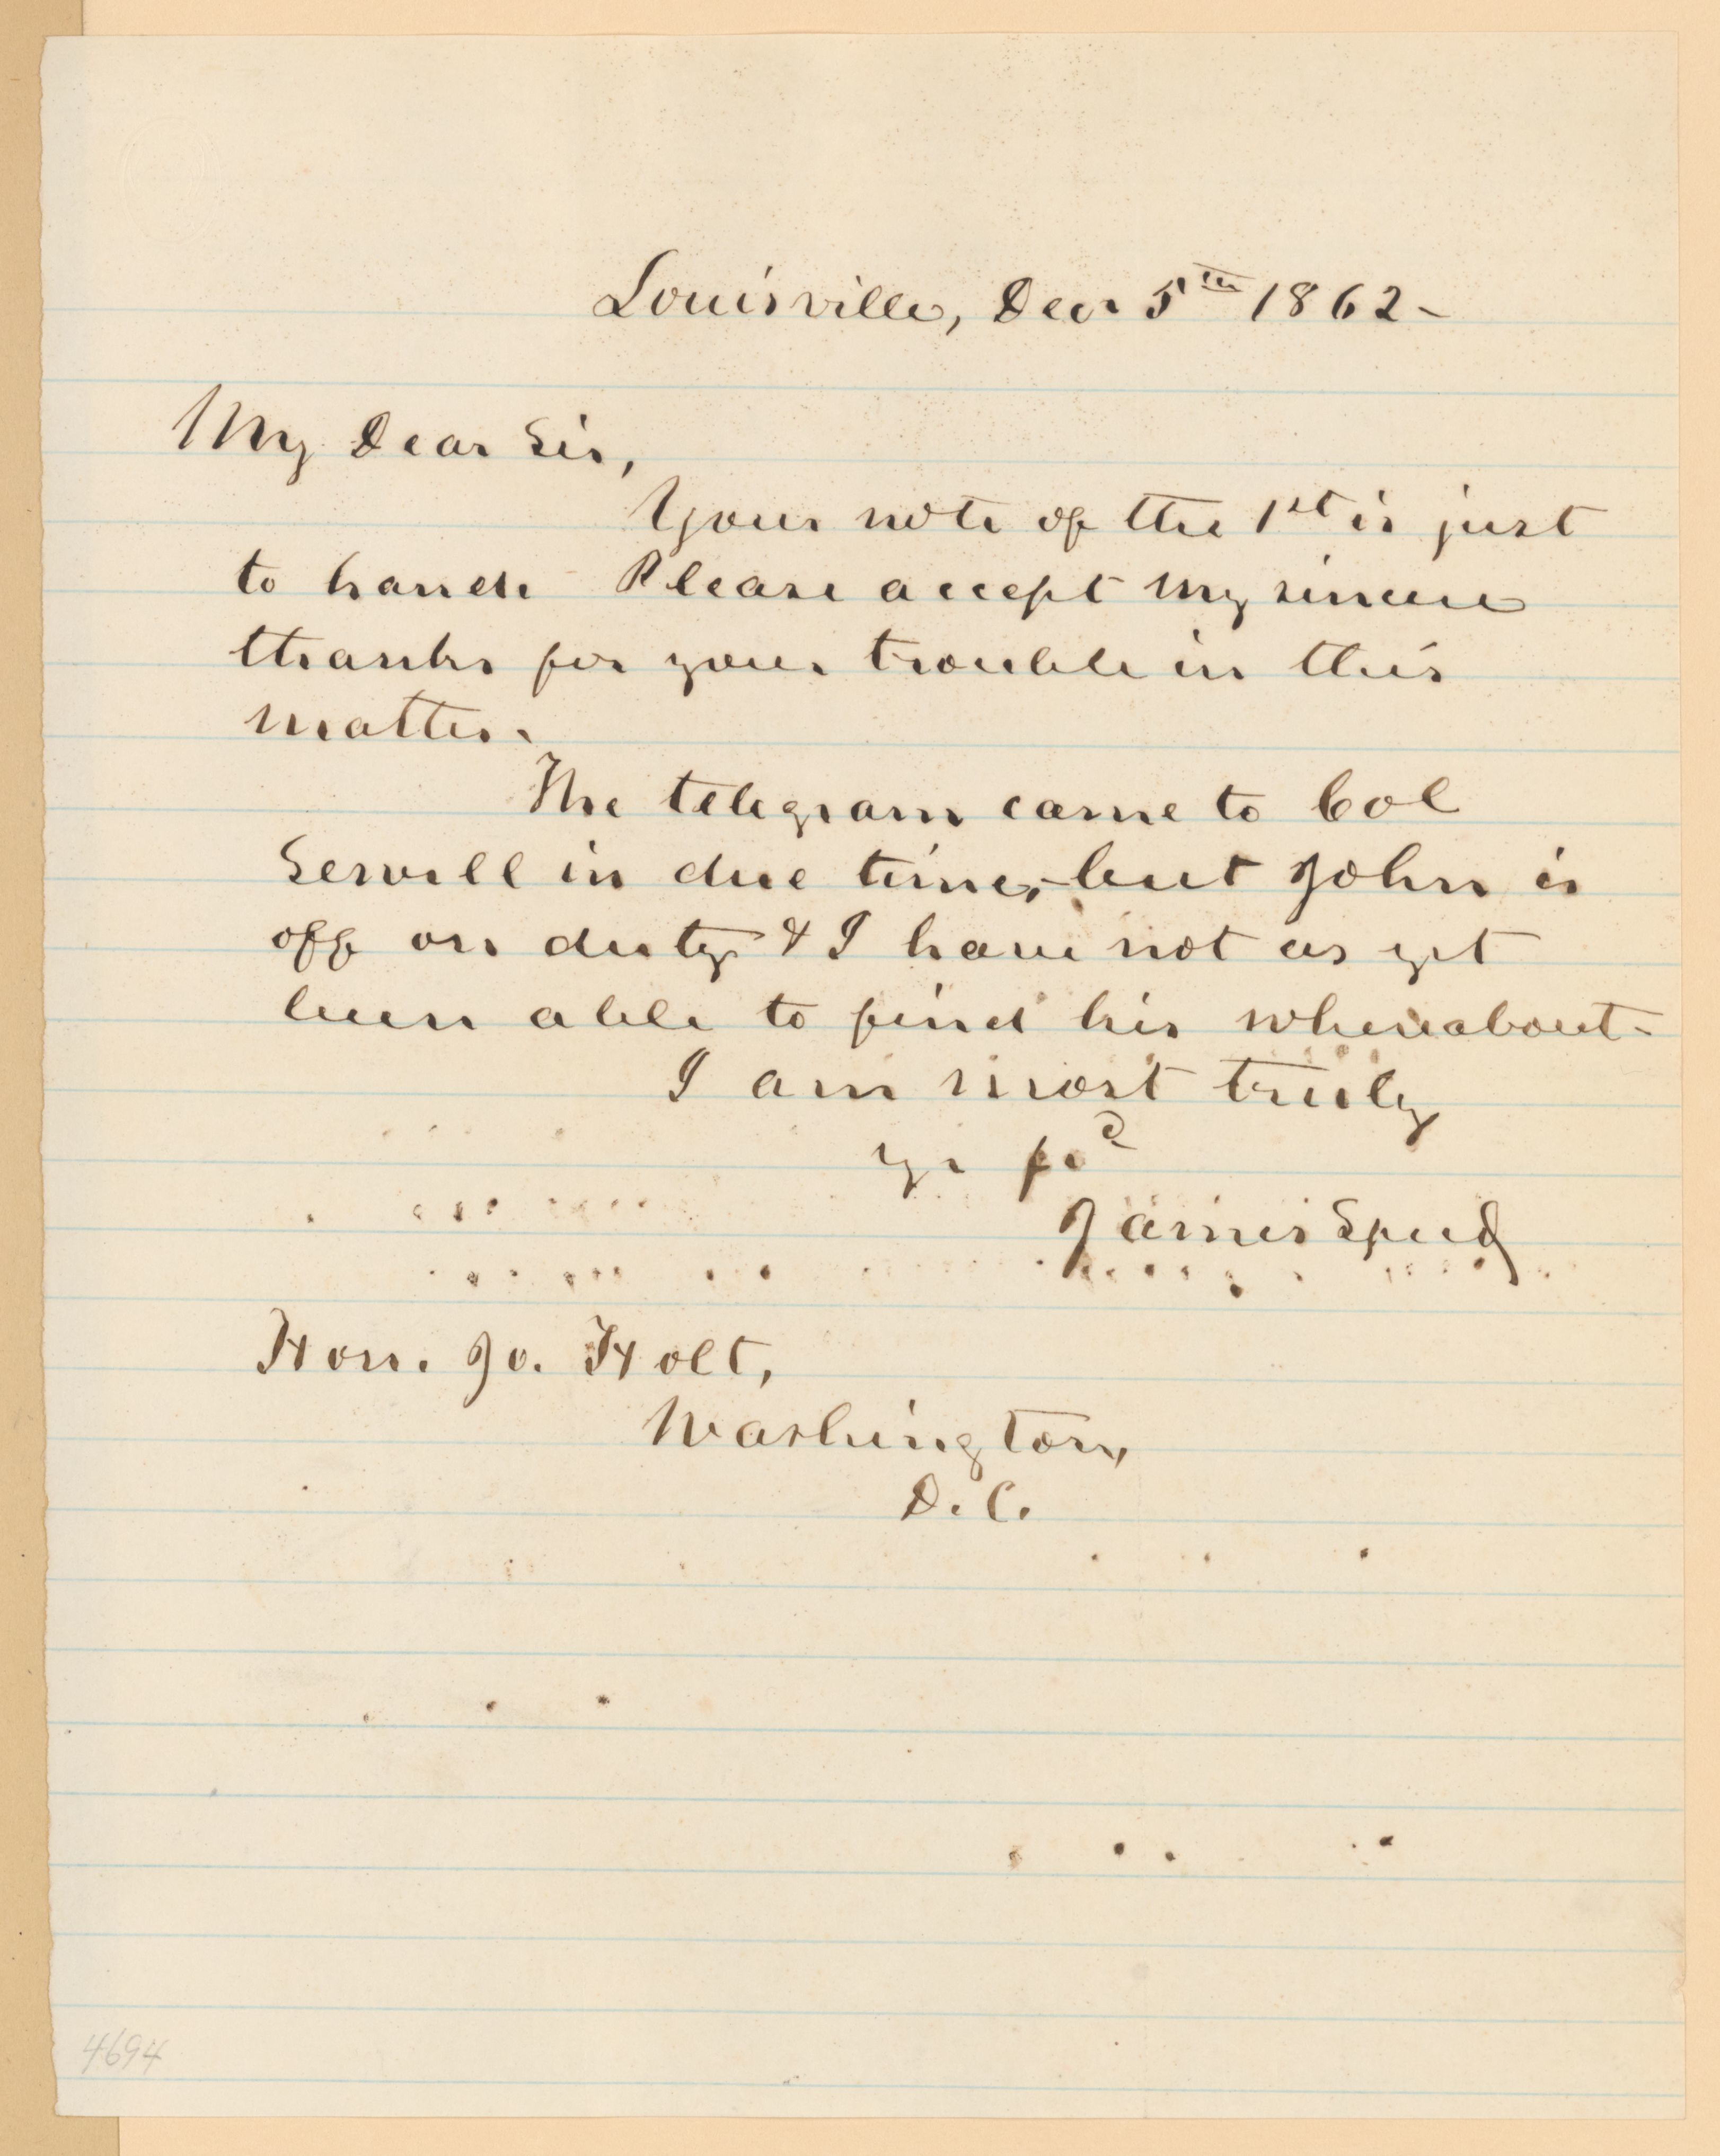 Louisville, Decr 5th 1862-
My Dear Sir,
Your note of the 1st is just
to hand. Please accept my sincere
thanks for your trouble in this
matter.
The telegram came to Col
Sewell in due time, but John is
off on duty & I have not as yet
been able to find his whereabout-
I am most truly
yr frd
James Speed
Hon. Jo. Holt,
Washington,
D.C.
4694